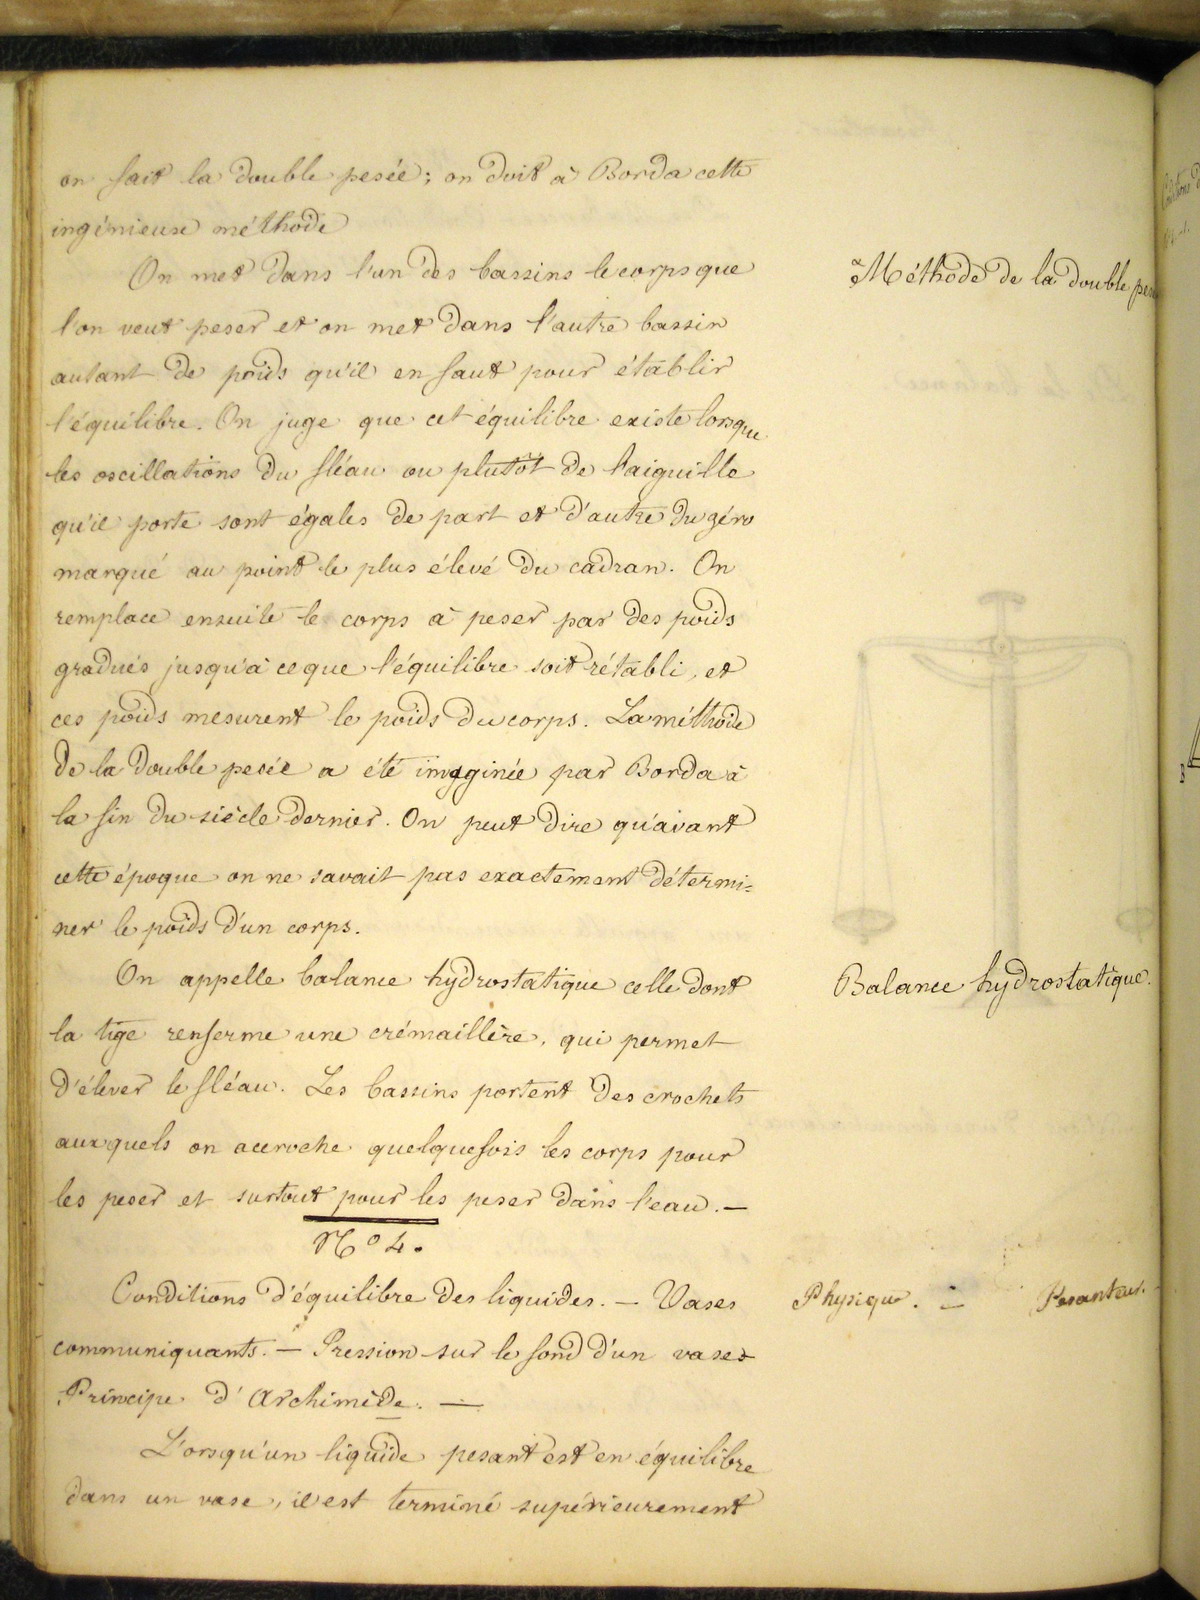 on fait la double pesée ; on doit à Borda cette
ingénieuse méthode
On met dans l'un des bassins le corps que
Méthode de la double
l'on veut peser et on met dans l'autre bassin
autant de poids qu'il en faut pour établir
l'équilibre. On juge que cet équilibre existe lorsque
les oscillations du fléau ou plutôt de l'aiguille
qu'il porte sont égales de part et d'autre du zéro
marqué au point le plus élevé du cadran. On
remplace ensuite le corps à peser par des poids
gradués jusqu'à ce que l'équilibre soit rétabli, et
ces poids mesurent le poids du corps. La méthode
de la double pesée a été imaginée par Borda à
la fin du siècle dernier. On peut dire qu'avant
cette époque on ne savait pas exactement détermi=
ner le poids d'un corps.
On appelle balance hydrostatique celle dont
Balance hydrostatique.
la tige renferme une crémaillère, qui permet
d'élever le fléau. Les bassins portent des crochets
auxquels on accroche quelquefois les corps pour
les peser et surtout pour les peser dans l'eau. —
No 4.
Conditions d'équilibre des liquides. — Vases
Physique. — Pesanteur.
communiquants. — Pression sur le fond d'un vase
Principe d'Archimède. —
Lorsqu'un liquide pesant est en équilibre
dans un vase, il est terminé supérieurement